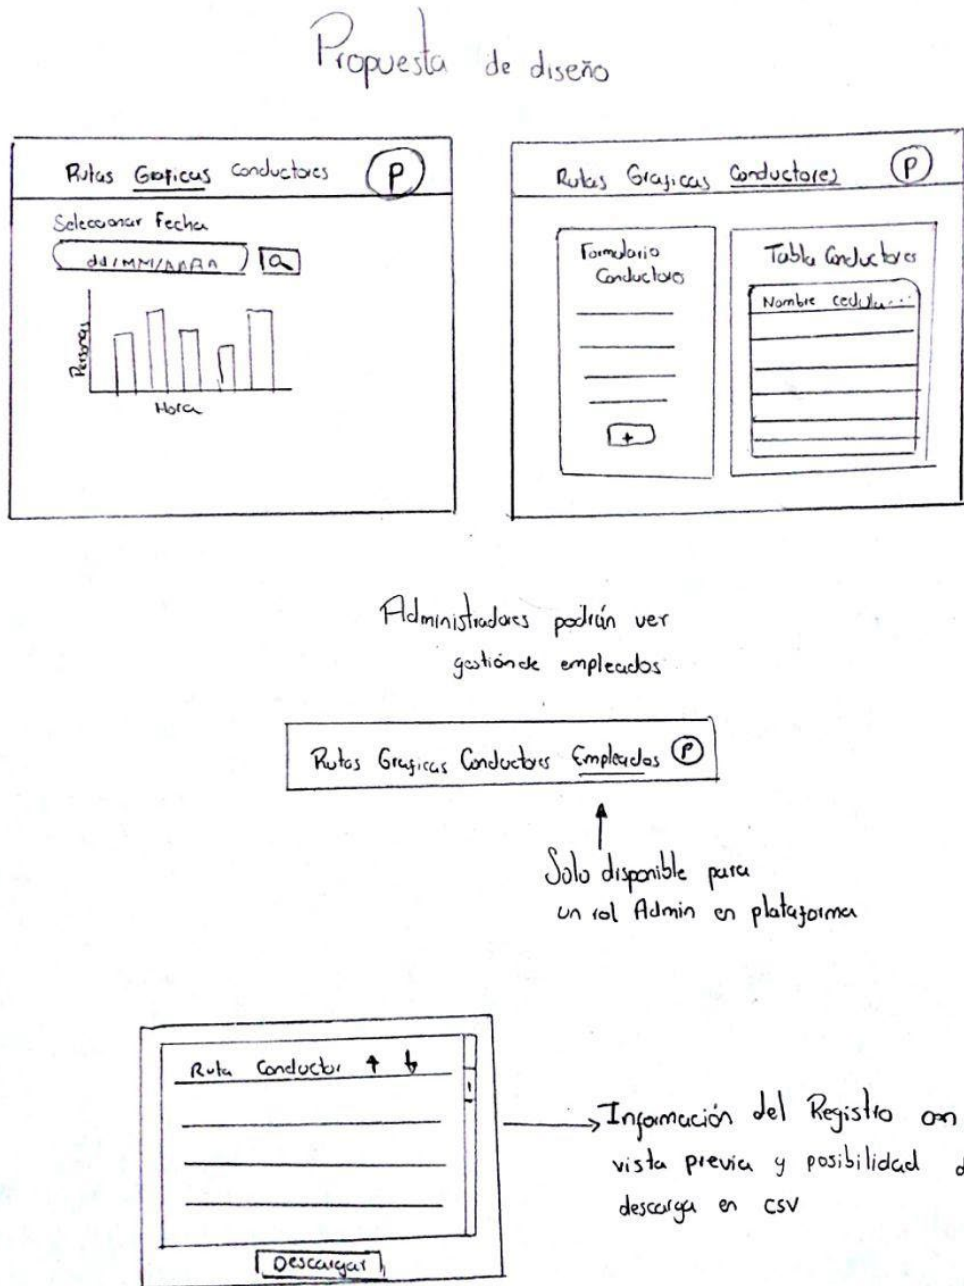 Propuesta de diseño
Rutas Graficas Conductores P
Seleccionar Fecha
dd/MM/AAAA
Personas
Hora
Rutas Graficas Conductores P
Formulario
Conductores
+
Tabla Conductores
Nombre cedula...
Administradores podrán ver
gestión de empleados
Rutas Graficas Conductores Empleados P
Solo disponible para
un rol Admin en plataforma
Ruta Conductor ↑ ↓
Descargar
Información del Registro con
vista previa y posibilidad d
descarga en csv